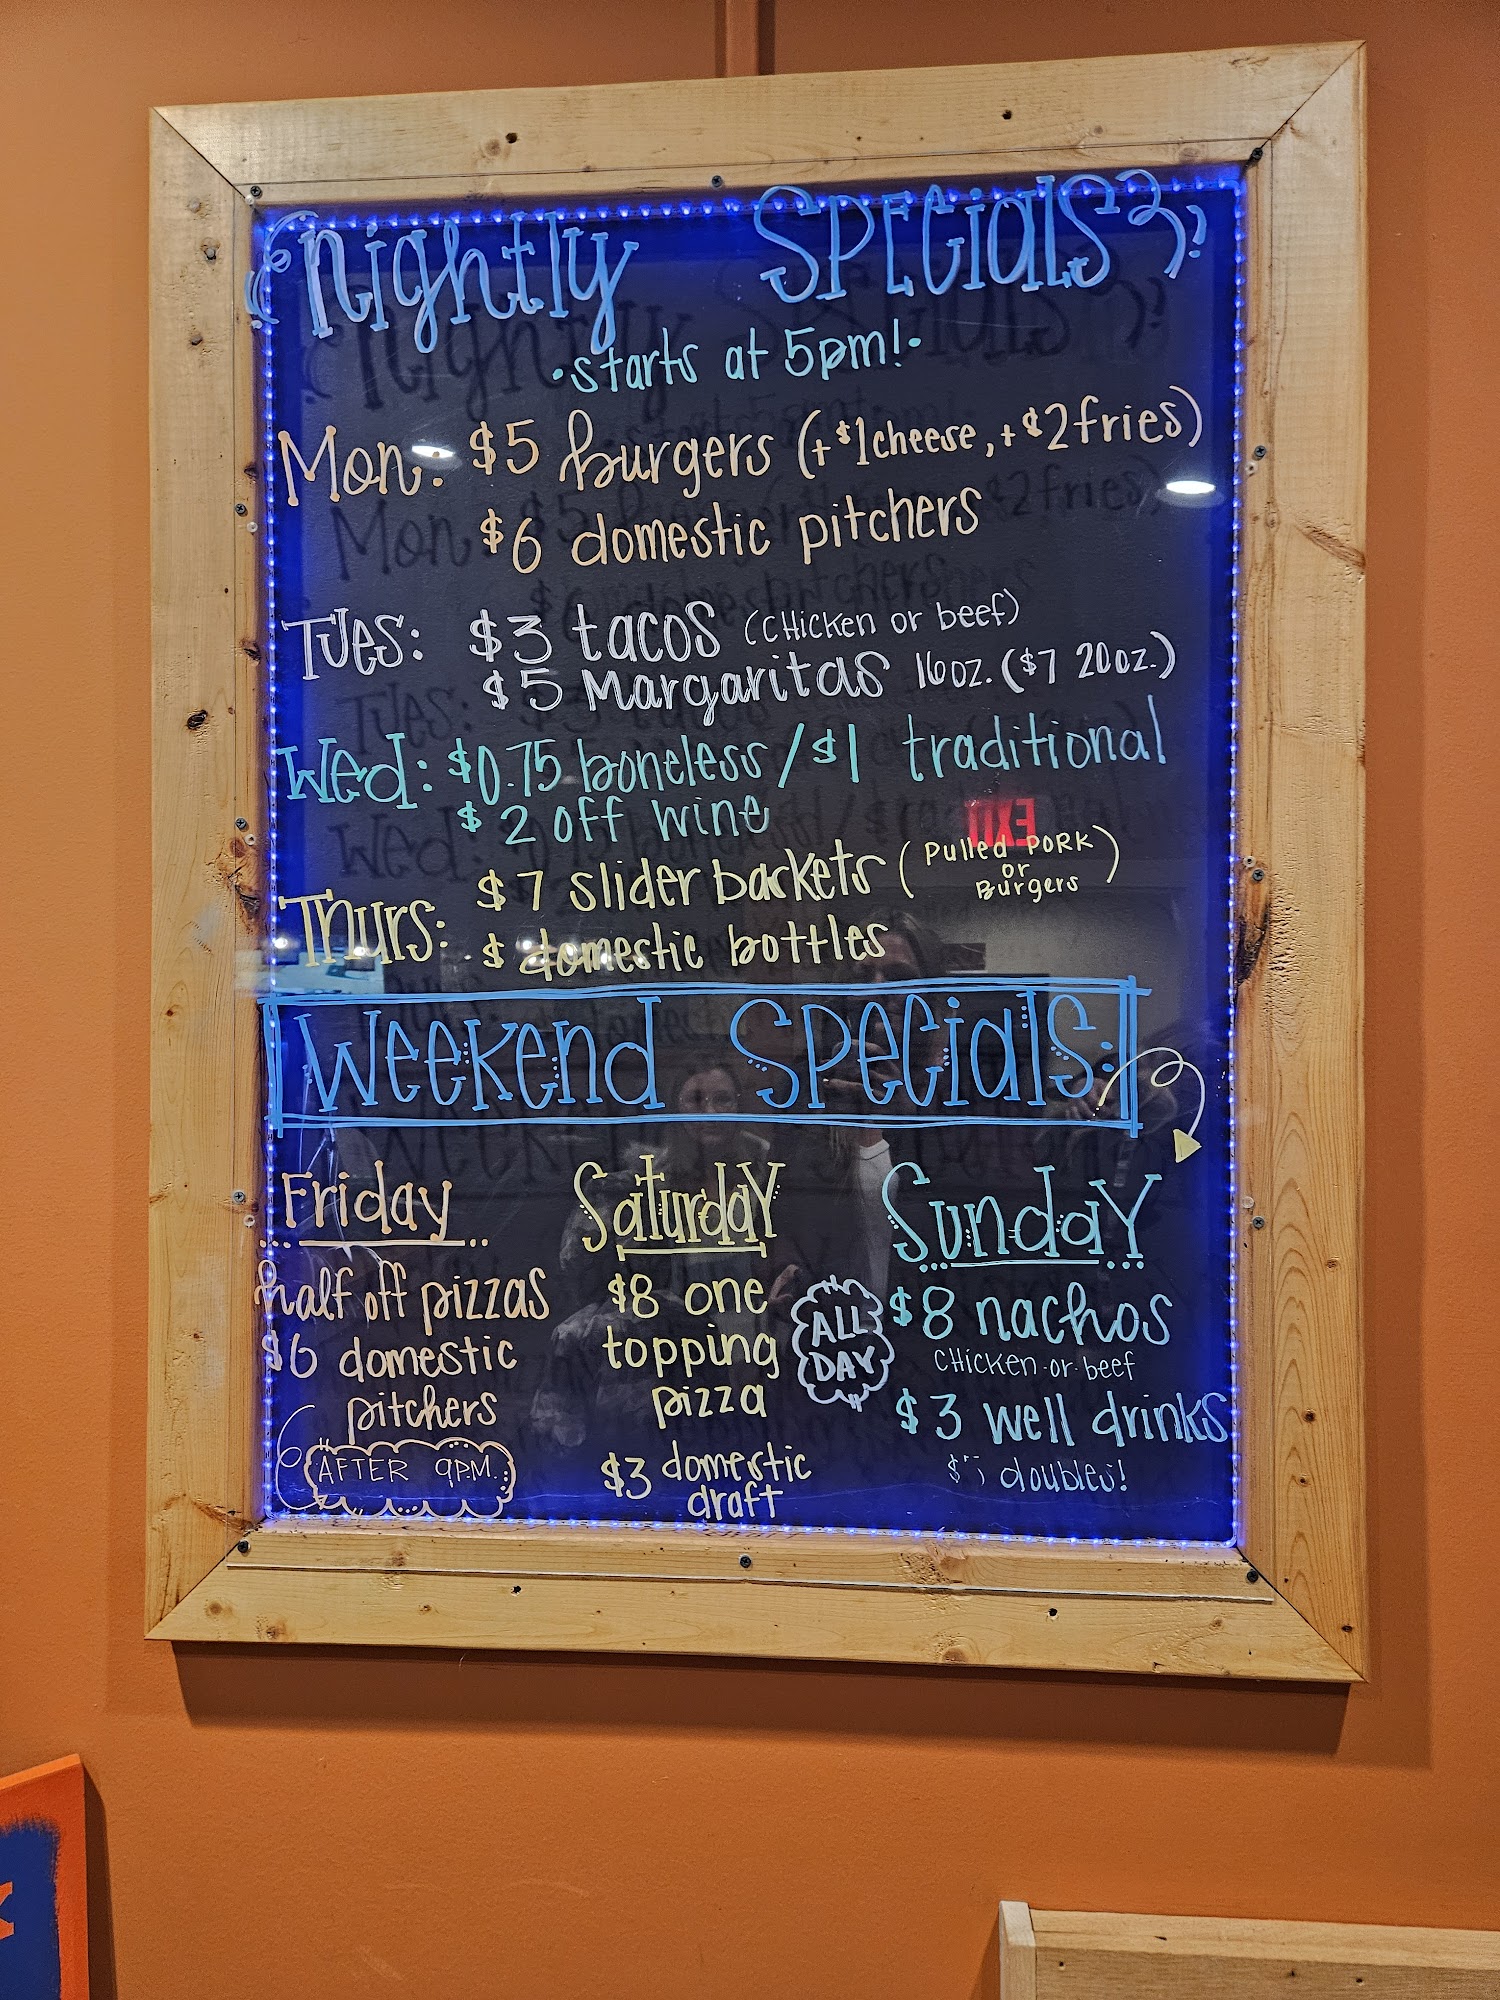 Nightly Specials
•starts at 5pm!•
Mon: $5 burgers (+$1 cheese, +$2 fries)
$6 domestic pitchers
Tues: $3 tacos (chicken or beef)
$5 Margaritas 16oz. ($7 20oz.)
Wed: $0.75 boneless / $1 traditional
$2 off wine
EXIT
Thurs: $7 slider baskets (Pulled Pork or Burgers)
$ domestic bottles
Weekend Specials:
Friday
half off pizzas
$6 domestic
pitchers
AFTER 9PM.
Saturday
$8 one
topping
pizza
$3 domestic
draft
ALL
DAY
Sunday
$8 nachos
chicken or beef
$3 well drinks
doubles!